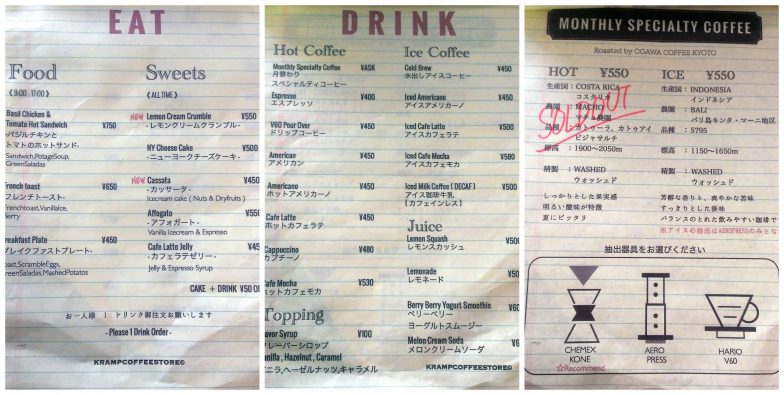 EAT
Food
(9:00-17:00)
Basil Chicken &
Tomato Hot Sandwich ¥750
-バジルチキンと
トマトのホットサンド-
Sandwich,PotageSoup,
GreenSaladas
French toast ¥650
フレンチトースト-
Frenchtoast,VanilaIce,
Berry
Breakfast Plate ¥450
ブレイクファストプレート-
Toast,ScrambleEggs,
GreenSaladas,MashedPotatos
Sweets
(ALL TIME)
NEW Lemon Cream Crumble ¥550
-レモンクリームクランブル-
NY Cheese Cake ¥500
-ニューヨークチーズケーキ-
NEW Cassata ¥450
-カッサータ-
Icecream cake ( Nuts & Dryfruits )
Affogato ¥550
-アフォガート-
Vanilla Icecream & Espresso
Cafe Latte Jelly ¥450
-カフェラテゼリー-
Jelly & Espresso Syrup
CAKE + DRINK ¥50 OFF
お一人様 1 ドリンク御注文お願いします
- Please 1 Drink Order -
KRAMPCOFFEESTORE©
DRINK
Hot Coffee
Monthly Specialty Coffee ¥ASK
月替わり
スペシャルティコーヒー
Espresso ¥400
エスプレッソ
V60 Pour Over ¥450
ドリップコーヒー
American ¥450
アメリカン
Americano ¥450
ホットアメリカーノ
Cafe Latte ¥450
ホットカフェラテ
Cappuccino ¥480
カプチーノ
Cafe Mocha ¥530
ホットカフェモカ
Topping
Flavor Syrup ¥100
フレーバーシロップ
Vanilla , Hazelnut , Caramel
バニラ,ヘーゼルナッツ,キャラメル
Ice Coffee
Cold Brew ¥450
水出しアイスコーヒー
Iced Americano ¥450
アイスアメリカーノ
Iced Cafe Latte ¥500
アイスカフェラテ
Iced Cafe Mocha ¥580
アイスカフェモカ
Iced Milk Coffee ( DECAF ) ¥500
アイス珈琲牛乳
(カフェインレス)
Juice
Lemon Squash ¥500
レモンスカッシュ
Lemonade
レモネード
Berry Berry Yogurt Smoothie
ベリーベリー
ヨーグルトスムージー
Melon Cream Soda
メロンクリームソーダ
KRAMPCOFFEESTORE©
MONTHLY SPECIALTY COFFEE
Roasted by OGAWA COFFEE KYOTO
HOT ¥550
生産国：COSTA RICA
コスタリカ
農園：MACHO
マチョ農園
品種：カトゥーラ、カトゥアイ
ビジャサルチ
標高：1900～2050m
SOLD OUT
精製：WASHED
ウォッシュド
しっかりとした果実感
明るい酸味が特徴
夏にピッタリ
ICE ¥550
生産国：INDONESIA
インドネシア
農園：BALI
バリ島キンタ・マーニ地区
品種：S795
標高：1150～1650m
精製：WASHED
ウォッシュド
芳醇な香りと、爽やかな苦味
すっきりとした後味
バランスのとれた飲みやすい珈琲で
※アイスの抽出はAEROPRESSのみとな
抽出器具をお選びください
CHEMEX
KONE
☆Recommend
AERO
PRESS
HARIO
V60